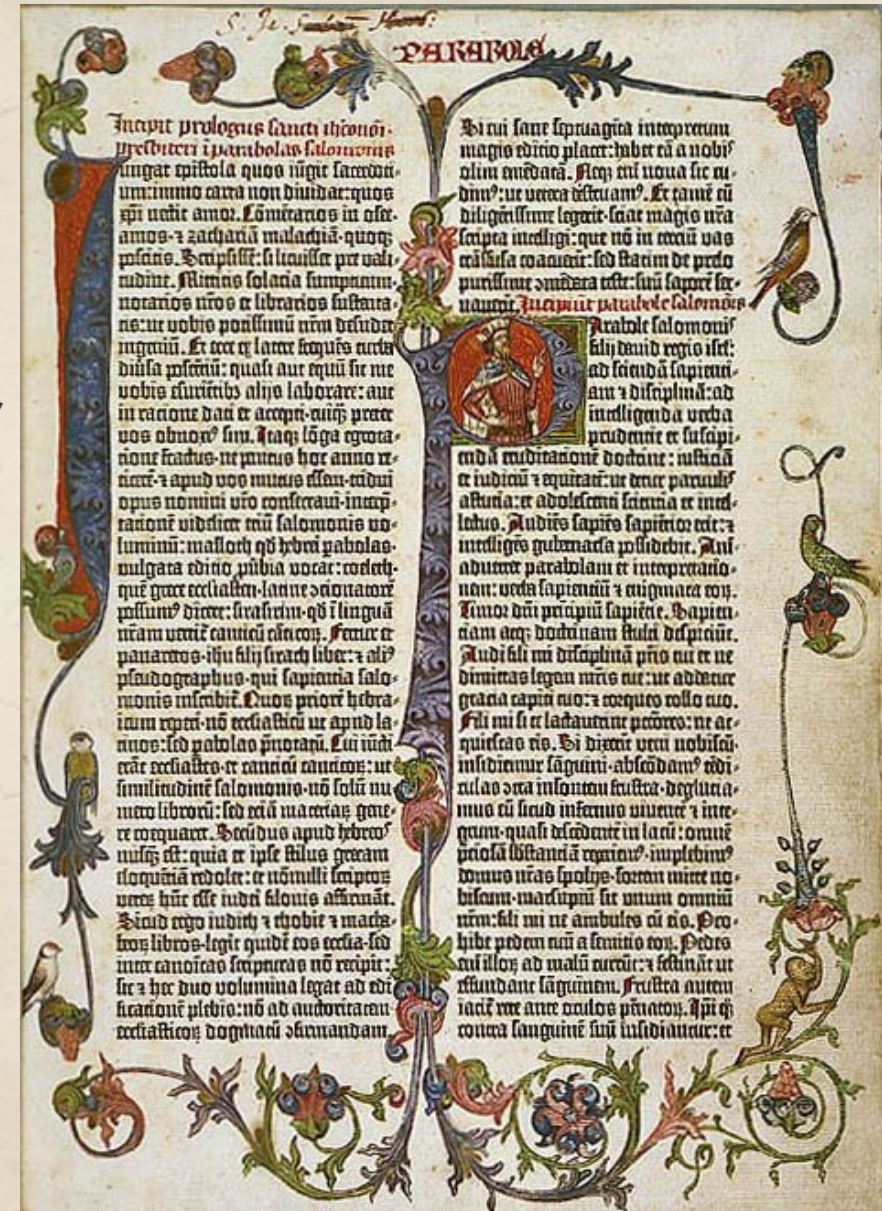 PARABOLE
Incipit prologus sancti iheronimi
presbiteri ī parabolas salomonis
Iungat epistola quos iūgit sacerdoti-
um: immo carta non dividat: quos
xp̄i nectit amor. Cōmētarios in osee-
amos-⁊ zachariā malachiā-quoqꝫ
poscitis. Scripsissē: si licuisset pre vali-
tudine. Mittitis solacia sumptuum-
notarios nr̄os et librarios sustenta-
tis: ut vobis potissimū nr̄m desudet
ingeniū. Et ecce ex latere frequēs turba
diūsa poscētiū: quasi aut equū sit me
vobis esuriētibꝫ alijs laborare: aut
in racione dati et accepti-cuiqꝫ preter
vos obnoxiꝰ sim. Itaqꝫ lōga egrota-
tione fractus-ne penitus hoc anno re-
ticerē-⁊ apud vos mutus essem-tridui
opus nomini vr̄o consecraui-interp̄-
tationē videlicet triū salomonis vo-
luminū: masloth qd̄ hebrei ꝑabolas-
vulgata editio ꝓūbia vocat: coeleth-
quē grece ecclesiasten-latine ↄcionatorē
possumꝰ dicere: sirasirim-qd̄ ī linguā
nr̄am vertit᷑ canticū cāticoꝝ. Fertur et
panaretos-ihū filij sirach liber: ⁊ aliꝰ
pseudographus-qui sapientia salo-
monis inscribit᷑. Quoꝝ priorē hebra-
icum reperi-nō ecclesiasticū ut apud la-
tinos: sed ꝑabolas p̄notatū. Cui iūcti
erāt ecclesiastes-et canticū canticoꝝ: ut
similitudinē salomonis-nō solū nu-
mero librorū: sed eciā materiaꝝ gene-
re coequaret. Secūdus apud hebreos
nusqꝫ est: quia et ipse stilus grecam
eloquētiā redolet: et nōnulli scriptoꝝ
veteꝝ hūc esse iudei filonis affirmāt.
Sicud ergo iudith ⁊ thobie ⁊ macha-
beoꝝ libros-legit quidē eos ecclesia-sed
inter canoīcas scripturas nō recipit:
sic ⁊ hec duo volumina legat ad edi-
ficationē plebis: nō ad auctoritatem
ecclesiasticoꝝ dogmatū ↄfirmandam.
Si cui sane septuagīta interpretum
magis editio placet: habet eā a nobis
olim emēdatā. Neqꝫ em̄ noua sic cu-
dimꝰ: ut vetera destruamꝰ. Et tamē cū
diligētissime legerit-sciat magis nr̄a
scripta intelligi: que nō in terciū vas
trāsfusa coacuerīt: sed statim de prelo
purissime ↄmēdata teste: suū saporē ser-
uauerīt. Incipiūt parabole salomonis
Parabole salomonis
filij dauid regis isrl̄:
ad sciendā sapienti-
am ⁊ disciplinā: ad
intelligenda verba
prudentie et suscipi-
endā eruditationē doctrine: iusticiā
et iudiciū ⁊ equitatē: ut detur paruulis
astucia: et adolescenti sciencia et intel-
lectus. Audiēs sapiēs sapiētior erit: ⁊
intelligēs gubernacla possidebit. Ani-
aduertet parabolam et interpretatio-
nem: verba sapientiū ⁊ enigmata eoꝝ.
Timor dn̄i prīcipiū sapiētie. Sapien-
tiam atqꝫ doctrinam stulti despiciūt.
Audi fili mi disciplinā pr̄is tui et ne
dimittas legem mr̄is tue: ut addatur
gracia capiti tuo: ⁊ torques collo tuo.
Fili mi si te lactauerint pctōres: ne ac-
quiescas eis. Si dixerīt veni nobiscū-
insidiemur sāguini-abscōdamꝰ tēdi-
culas ↄtra insontem frustra-degluciā-
mus eū sicud infernus viuentē ⁊ inte-
grum-quasi descēdentē in lacū: omnē
p̄ciosā sb̄stanciā repriemꝰ-implebimꝰ
domus nr̄as spolijs-sortem mitte no-
biscum-marsupiū sit unum omniū
nr̄m: fili mi ne ambules cū eis. Pro-
hibe pedem tuū a semitis eoꝝ. Pedes
em̄ illoꝝ ad malū currūt: ⁊ festināt ut
effundant sāguinem. Frustra autem
iacit᷑ rete ante oculos pēnatoꝝ. Ipi qꝫ
contra sanguinē suū insidiantur: et